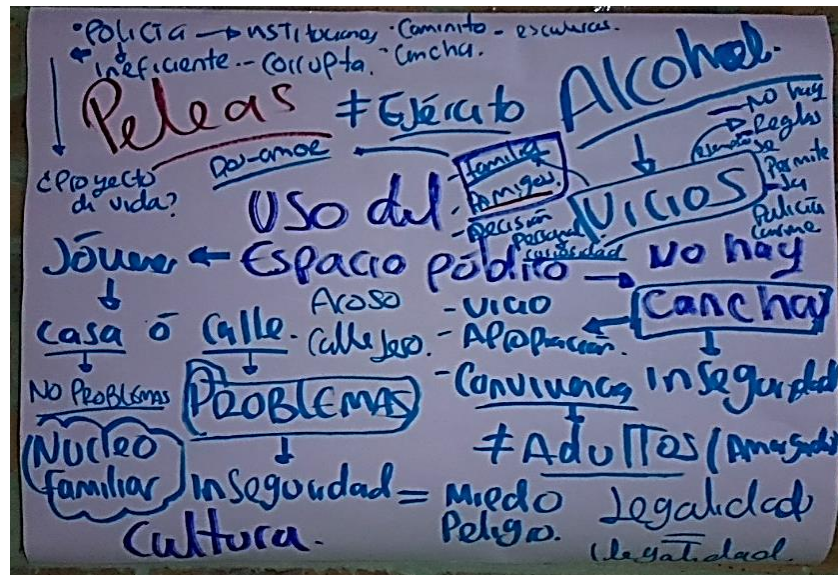 • Policía → Instituciones • Caminito - esculturas.
ineficiente - Corrupta. Cancha.
Peleas ≠ Ejército
Alcohol.
No hay
Reglas
¿Proyecto
de vida?
Dos-amor
- familia
- Amigos.
- Decisión
personal
curiosidad
Vicios
Permite
Policía
Uso del
Espacio público → No hay
Cancha
Jóvenes ←
Casa ó Calle.
Acoso
Callejero.
- Vicio
- Apropiación.
- Convivencia
inseguridad
NO PROBLEMAS
PROBLEMAS
Núcleo
familiar
≠ Adultos
inseguridad = Miedo
Peligro.
Cultura.
Legalidad
Ilegalidad.